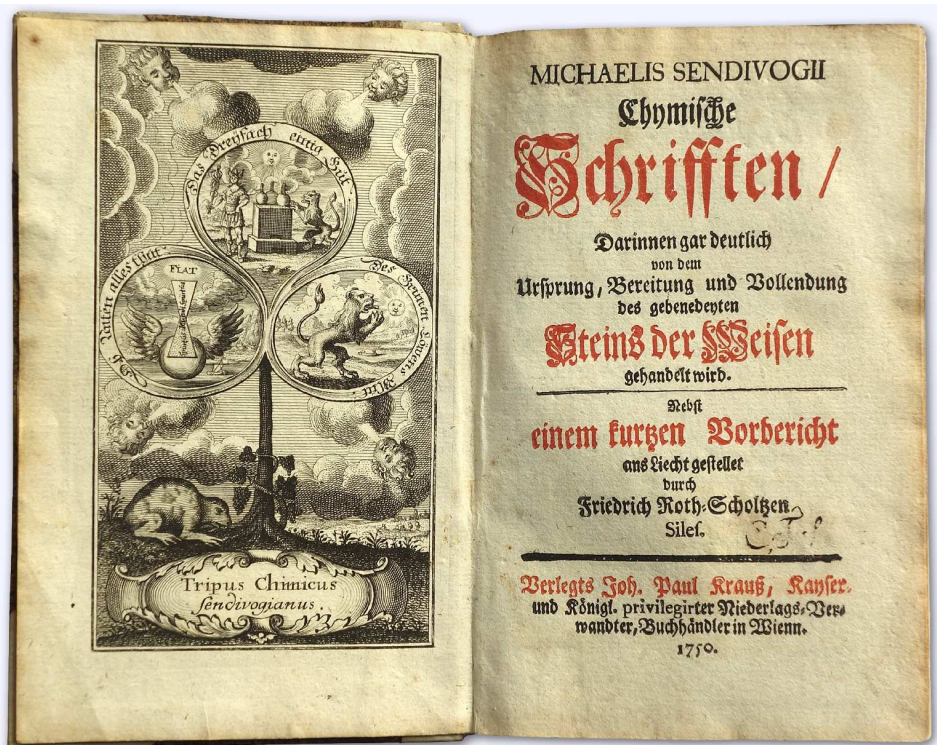 Das Dreyfach einig Gut
FIAT
Des Grünen Lowens Blut
Tripus Chimicus
Sendivogianus.
MICHAELIS SENDIVOGII
Chymische
Schrifften /
Darinnen gar deutlich
von dem
Ursprung, Bereitung und Vollendung
des gebenedeyten
Steins der Weisen
gehandelt wird.
Nebst
einem kurtzen Vorbericht
ans Liecht gestellet
durch
Friedrich Roth-Scholtzen
Siles.
Verlegts Joh. Paul Krauß, Kayser-
und Königl. privilegirter Niederlags-Ver-
wandter, Buchhändler in Wienn.
1750.